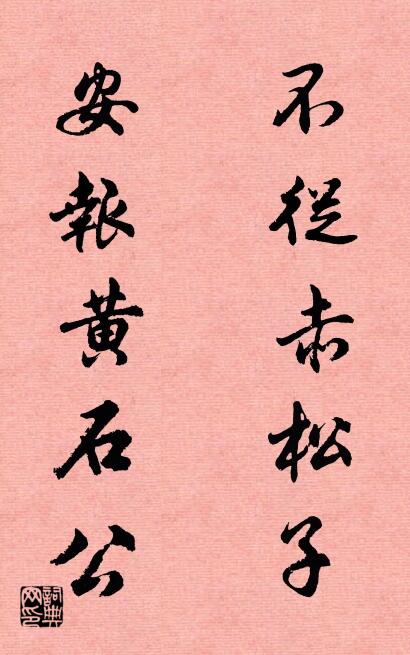 不從赤松子
安報黃石公
詞典網印